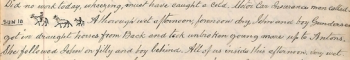 Did no work today, wheezing, must have caught a cold. Mutual Car Insurance man called.
SUN 18 A thorough wet afternoon, fourview dry John and boy Gunderson
got in draught horses from Back and took unbroken young mare up to Antons.
She followed John on filly and boy behind. All of us inside this afternoon, very wet